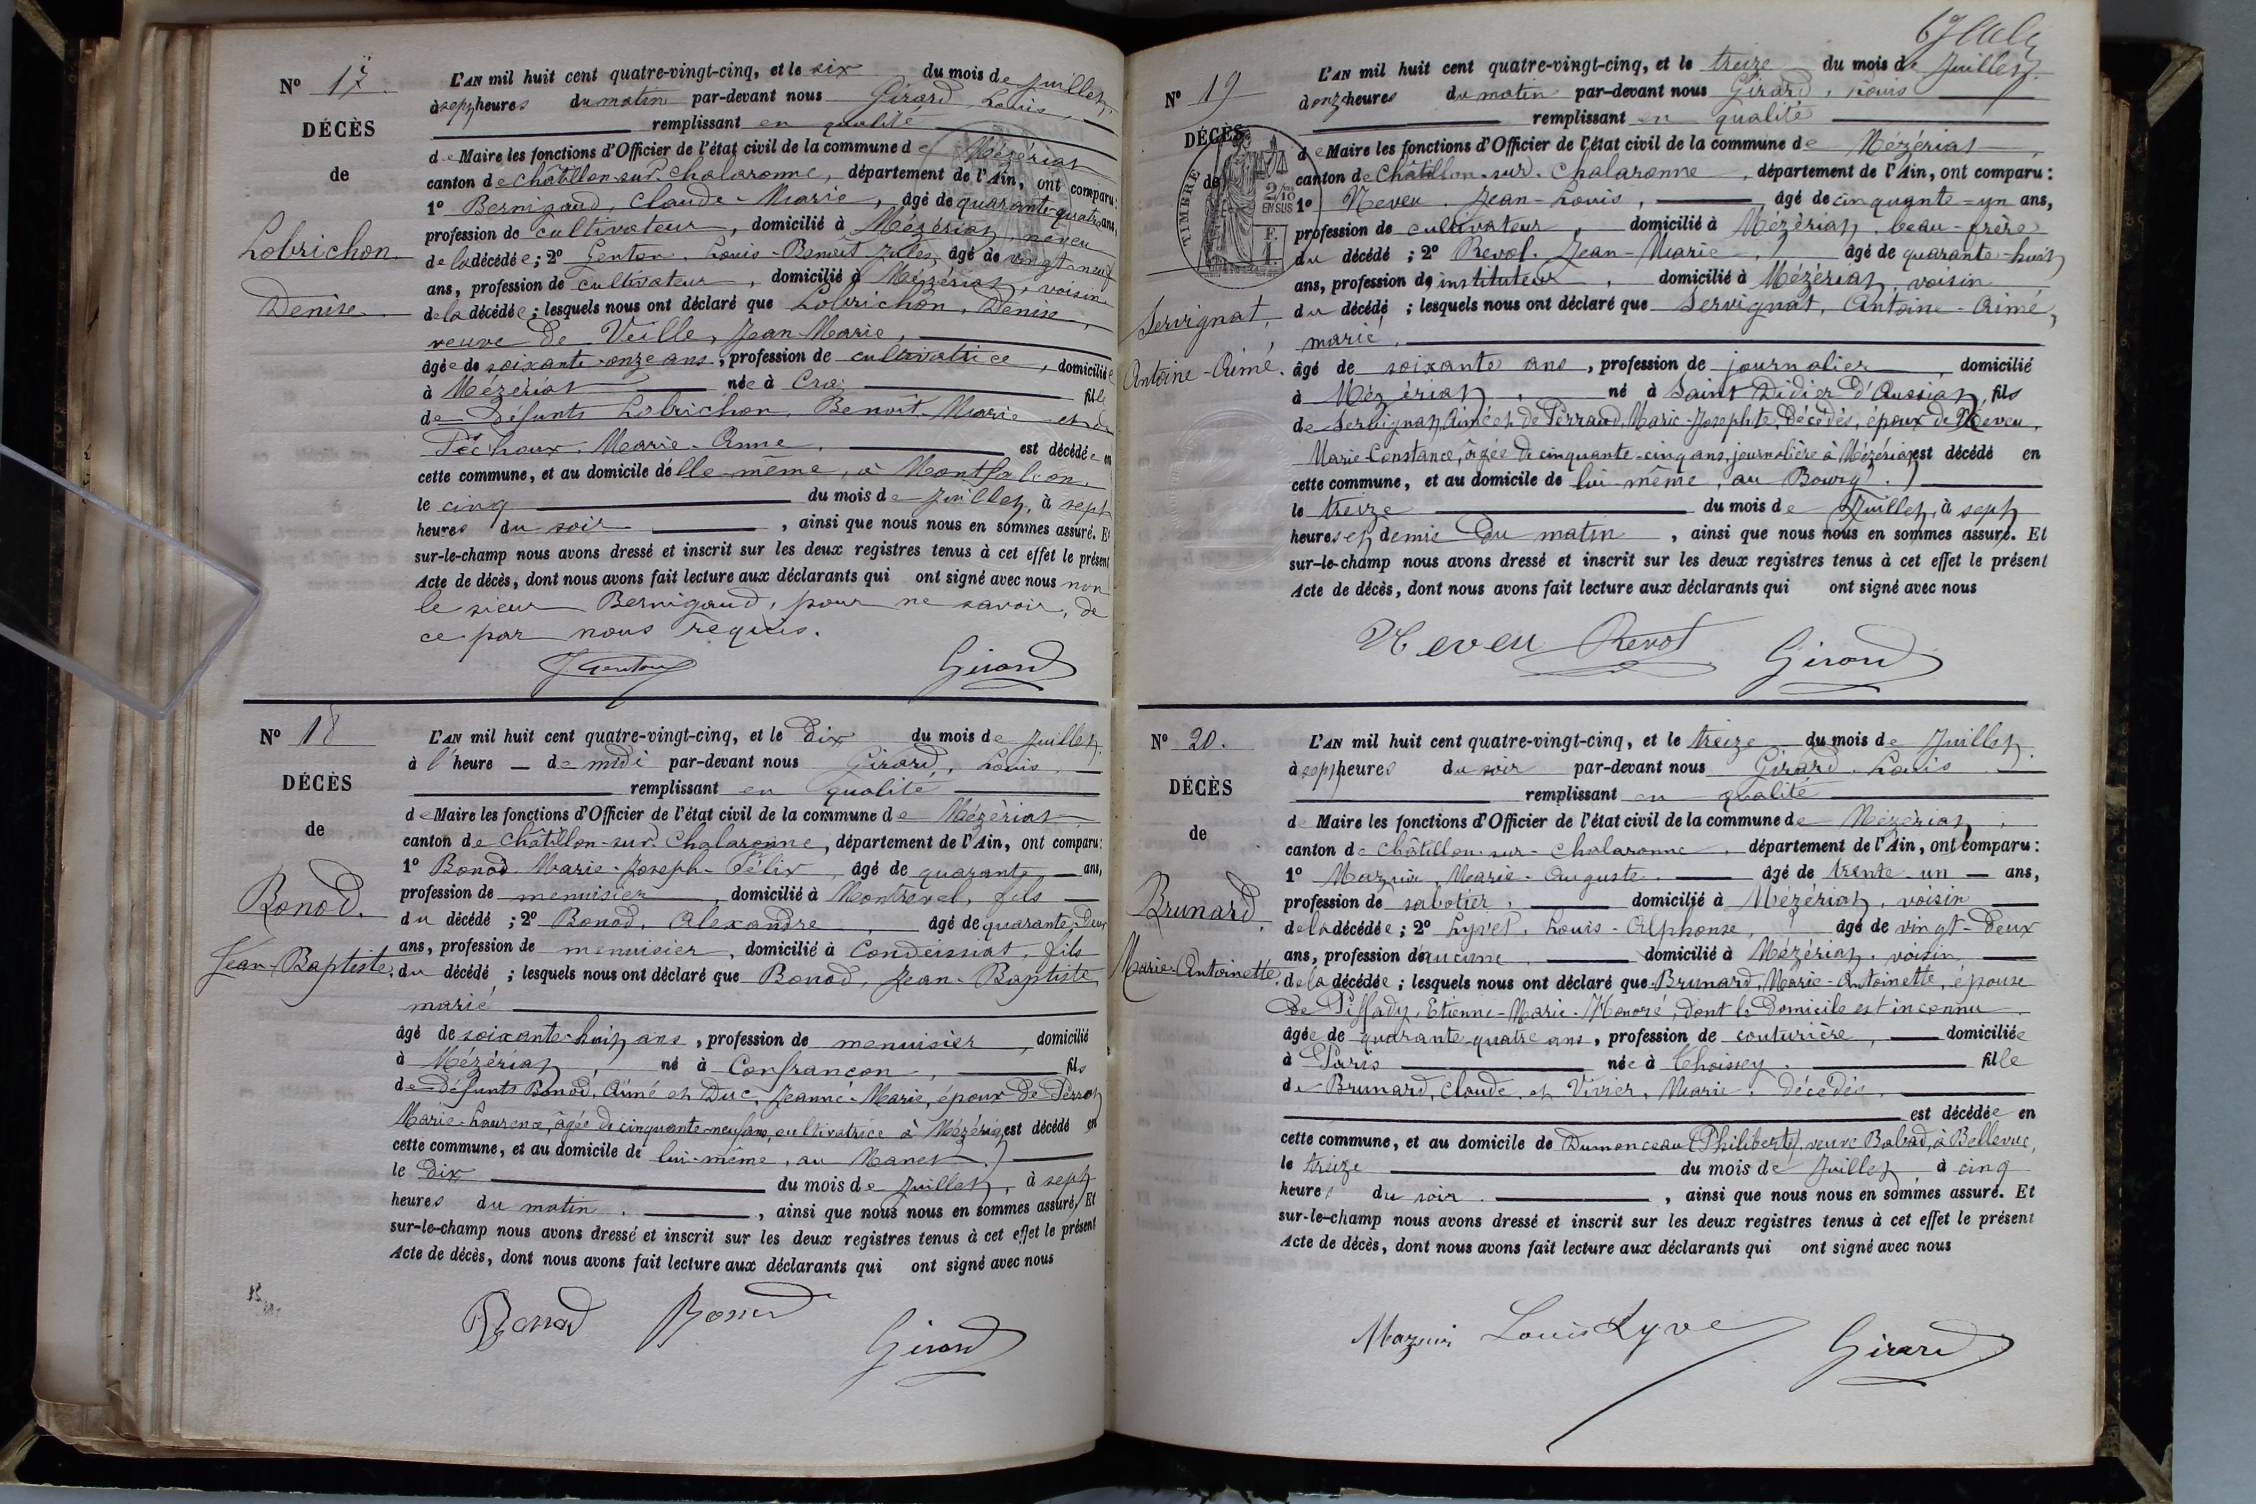 Nº 17
DÉCÈS
de
Lobrichon
Denise
L'AN mil huit cent quatre-vingt-cinq, et le six du mois de Juillet,
à sept heures du matin par-devant nous Girard, Louis,
remplissant en qualité
de Maire les fonctions d'Officier de l'état civil de la commune de Mézériat
canton de Châtillon-sur-Chalaronne, département de l'Ain, ont comparu:
1º Bernigaud, Claude-Marie, âgé de quarante-quatre ans,
profession de cultivateur, domicilié à Mézériat, neveu
de la décédée; 2º Genton, Louis-Benoît-Jules, âgé de vingt-neuf
ans, profession de cultivateur, domicilié à Mézériat, voisin
de la décédée; lesquels nous ont déclaré que Lobrichon, Denise,
veuve de Veille, Jean-Marie,
âgée de soixante-onze ans, profession de cultivatrice, domiciliée
à Mézériat née à Cras fille
de défunts Lobrichon, Benoît-Marie et de
Péchoux, Marie-Anne, est décédée en
cette commune, et au domicile d'elle-même, à Montfalcon,
le cinq du mois de Juillet, à sept
heures du soir, ainsi que nous nous en sommes assuré. Et
sur-le-champ nous avons dressé et inscrit sur les deux registres tenus à cet effet le présent
Acte de décès, dont nous avons fait lecture aux déclarants qui ont signé avec nous non
le sieur Bernigaud, pour ne savoir, de
ce par nous requis.
J. Genton Girard
Nº 18
DÉCÈS
de
Bonod.
Jean-Baptiste.
L'AN mil huit cent quatre-vingt-cinq, et le dix du mois de Juillet,
à l'heure de midi par-devant nous Girard, Louis
remplissant en qualité
de Maire les fonctions d'Officier de l'état civil de la commune de Mézériat
canton de Châtillon-sur-Chalaronne, département de l'Ain, ont comparu:
1º Bonod, Marie-Joseph-Félix, âgé de quarante ans,
profession de menuisier, domicilié à Montrevel, fils
du décédé; 2º Bonod, Alexandre, âgé de quarante-deux
ans, profession de menuisier, domicilié à Condeissiat, fils
du décédé; lesquels nous ont déclaré que Bonod, Jean-Baptiste
marié
âgé de soixante-huit ans, profession de menuisier, domicilié
à Mézériat, né à Confrançon, fils
de défunts Bonod, Aimé et Duc, Jeanne-Marie, époux de Perret
Marie-Laurence, âgée de cinquante-neuf ans, cultivatrice à Mézériat, est décédé en
cette commune, et au domicile de lui-même, au Manet.)
le dix du mois de Juillet, à sept
heures du matin, ainsi que nous nous en sommes assuré. Et
sur-le-champ nous avons dressé et inscrit sur les deux registres tenus à cet effet le présent
Acte de décès, dont nous avons fait lecture aux déclarants qui ont signé avec nous
Bonod Bonod Girard
Nº 19
DÉCÈS
de
TIMBRE
2/10
EN SUS
Servignat,
Antoine-Aimé.
L'AN mil huit cent quatre-vingt-cinq, et le treize du mois de Juillet,
à onze heures du matin par-devant nous Girard, Louis
remplissant en qualité
de Maire les fonctions d'Officier de l'état civil de la commune de Mézériat,
canton de Châtillon-sur-Chalaronne, département de l'Ain, ont comparu:
1º Neveu, Jean-Louis, âgé de cinquante-un ans,
profession de cultivateur, domicilié à Mézériat, beau-frère
du décédé; 2º Revol, Jean-Marie, âgé de quarante-huit
ans, profession de instituteur, domicilié à Mézériat, voisin
du décédé; lesquels nous ont déclaré que Servignat, Antoine-Aimé,
marié,
âgé de soixante ans, profession de journalier, domicilié
à Mézériat, né à Saint Didier d'Aussiat, fils
de Servignat, Aimé et de Perraud, Marie-Josephte, décédés, époux de Neveu,
Marie-Constance, âgée de cinquante-cinq ans, journalière à Mézériat, est décédé en
cette commune, et au domicile de lui-même, au Bourg.)
le treize du mois de Juillet, à sept
heures et demie du matin, ainsi que nous nous en sommes assuré. Et
sur-le-champ nous avons dressé et inscrit sur les deux registres tenus à cet effet le présent
Acte de décès, dont nous avons fait lecture aux déclarants qui ont signé avec nous
Neveu Revol Girard
Nº 20.
DÉCÈS
de
Brunard,
Marie-Antoinette.
L'AN mil huit cent quatre-vingt-cinq, et le treize du mois de Juillet,
à sept heures du soir par-devant nous Girard, Louis
remplissant en qualité
de Maire les fonctions d'Officier de l'état civil de la commune de Mézériat,
canton de Châtillon-sur-Chalaronne, département de l'Ain, ont comparu:
1º Mazuir, Marie-Auguste, âgé de trente-un ans,
profession de sabotier, domicilié à Mézériat, voisin
de la décédée; 2º Lyvet, Louis-Alphonse, âgé de vingt-deux
ans, profession d'aucune, domicilié à Mézériat, voisin,
de la décédée; lesquels nous ont déclaré que Brunard, Marie-Antoinette, épouse
de Piffady, Etienne-Marie-Honoré, dont le domicile est inconnu
âgée de quarante-quatre ans, profession de couturière, domiciliée
à Paris née à Thoissey, fille
de Brunard, Claude, et Vivier, Marie, décédés,
est décédée en
cette commune, et au domicile de Dumonceau (Philiberte) veuve Balvad, à Bellevue,
le treize du mois de Juillet à cinq
heures du soir, ainsi que nous nous en sommes assuré. Et
sur-le-champ nous avons dressé et inscrit sur les deux registres tenus à cet effet le présent
Acte de décès, dont nous avons fait lecture aux déclarants qui ont signé avec nous
Mazuir Louis Lyvet Girard